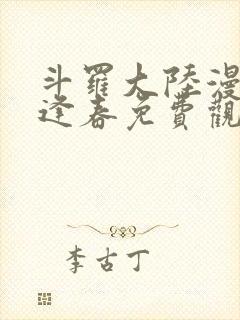 斗羅大陸漫
逢春免費觀
李古丁